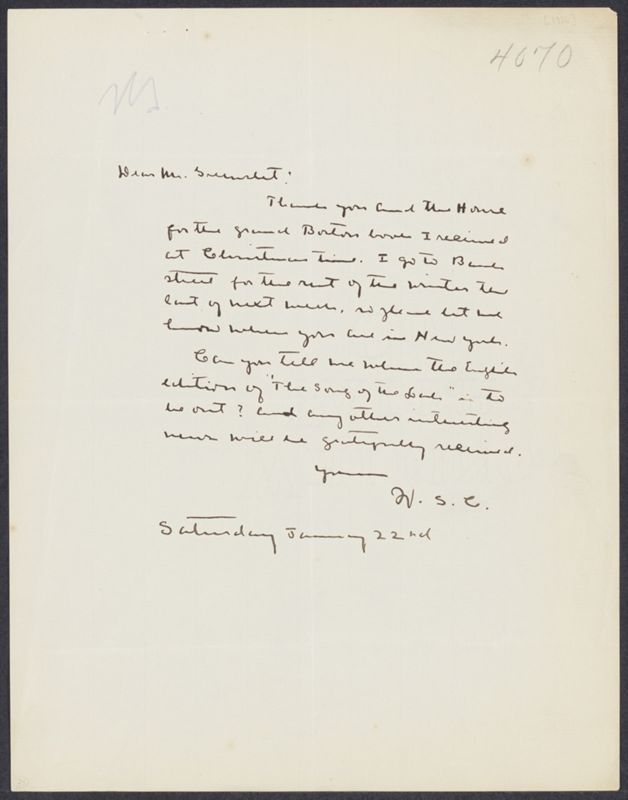 [1916]
4670
Dear Mr. Greenslet:
Thank you and the House
for the grand Boston book I received
at Christmas time. I go to Bank
street for the rest of the winter the
last of next week, so please let me
know when you are in New York.
Can you tell me when the English
edition of "The Song of the Lark" is to
be out? And any other interesting
news will be gratefully received.
Yours
W. S. C.
Saturday January 22nd